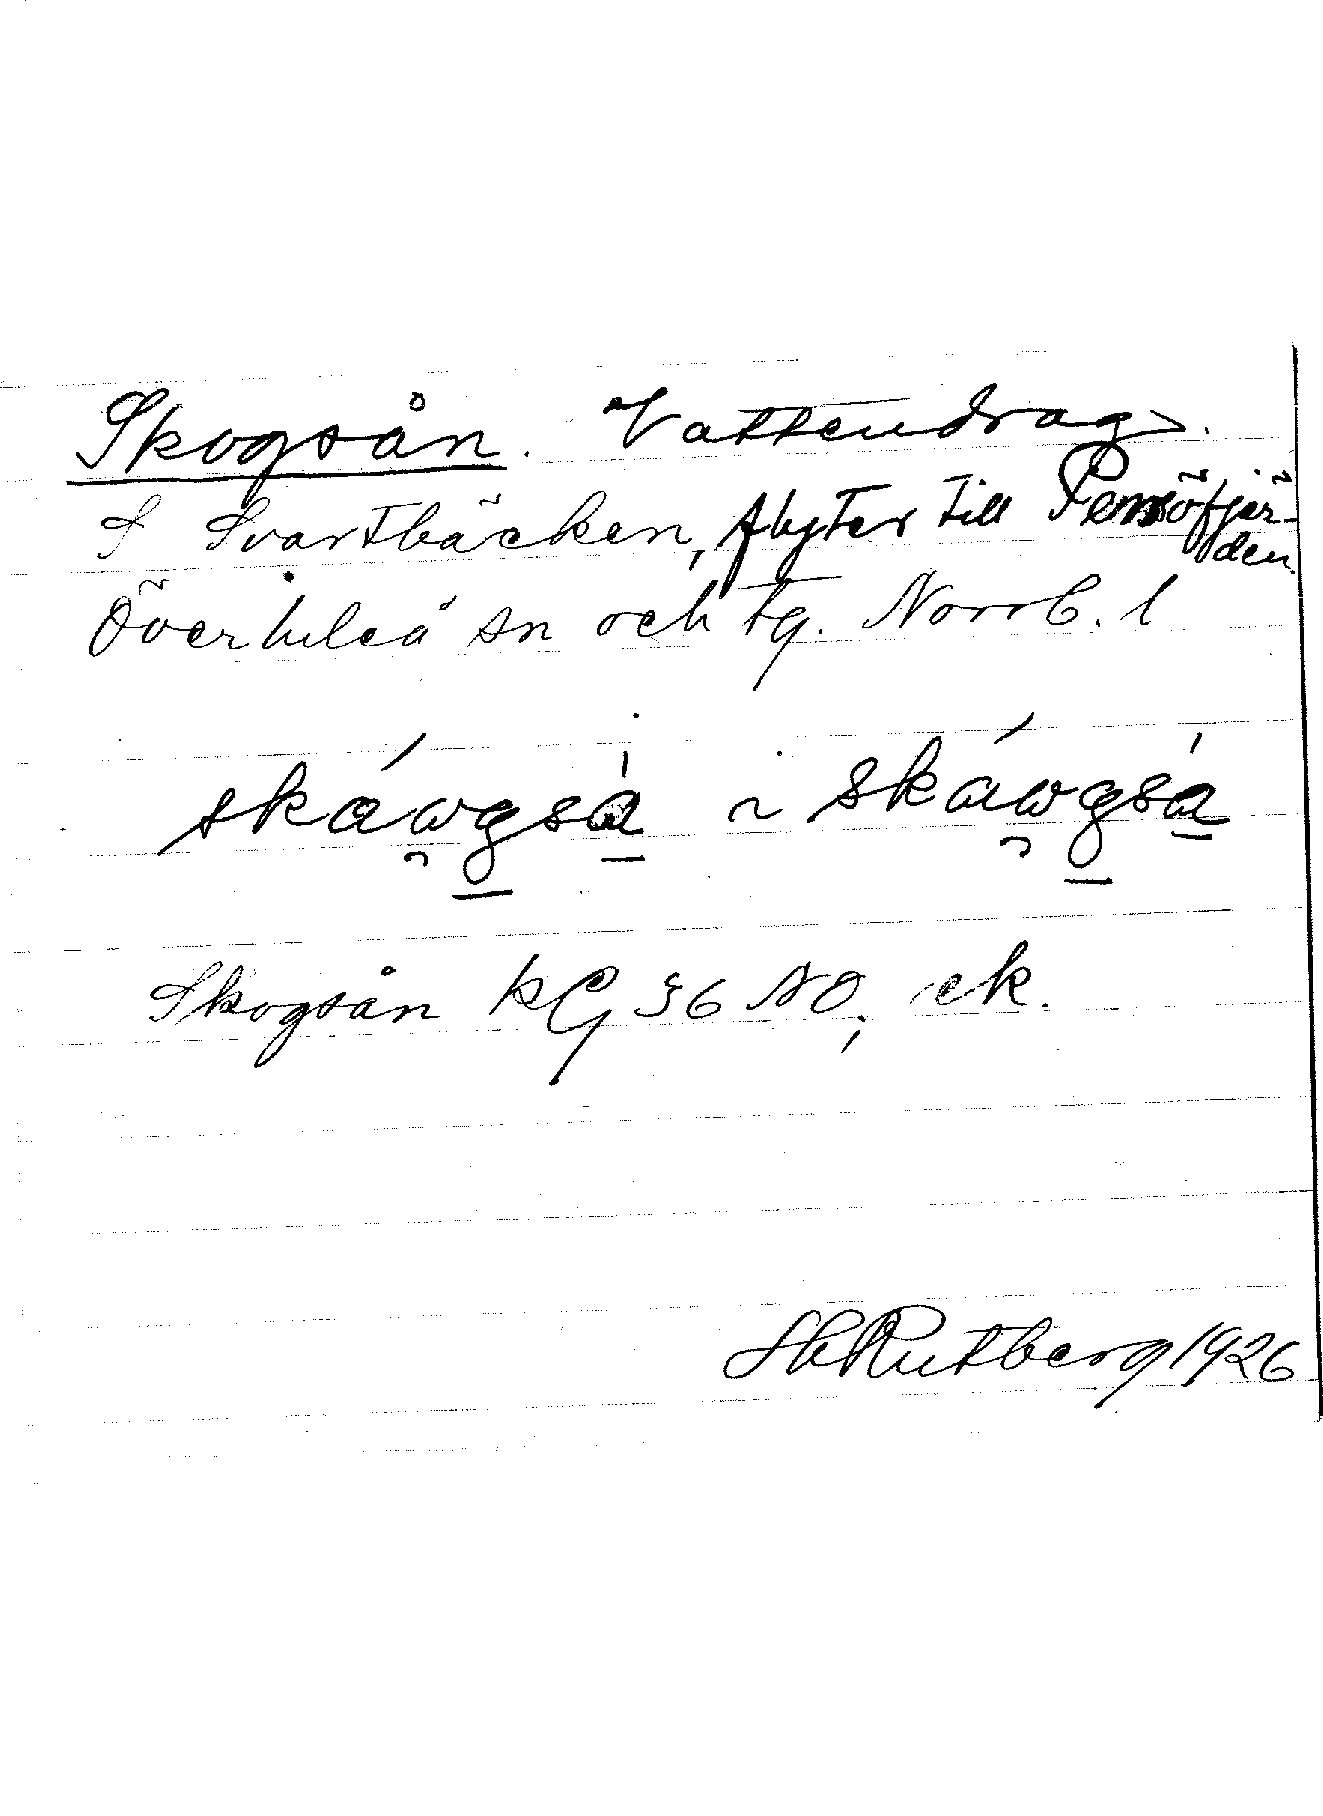 Skogsån. Vattendrag.
I Svartbäcken, flyter till Persöfjär-
den.
Överluleå sn och tg. Norrb. l
skáwgsà ~ skáwgsà
Skogsån kG 36 NO, ek.
Rutberg 1926